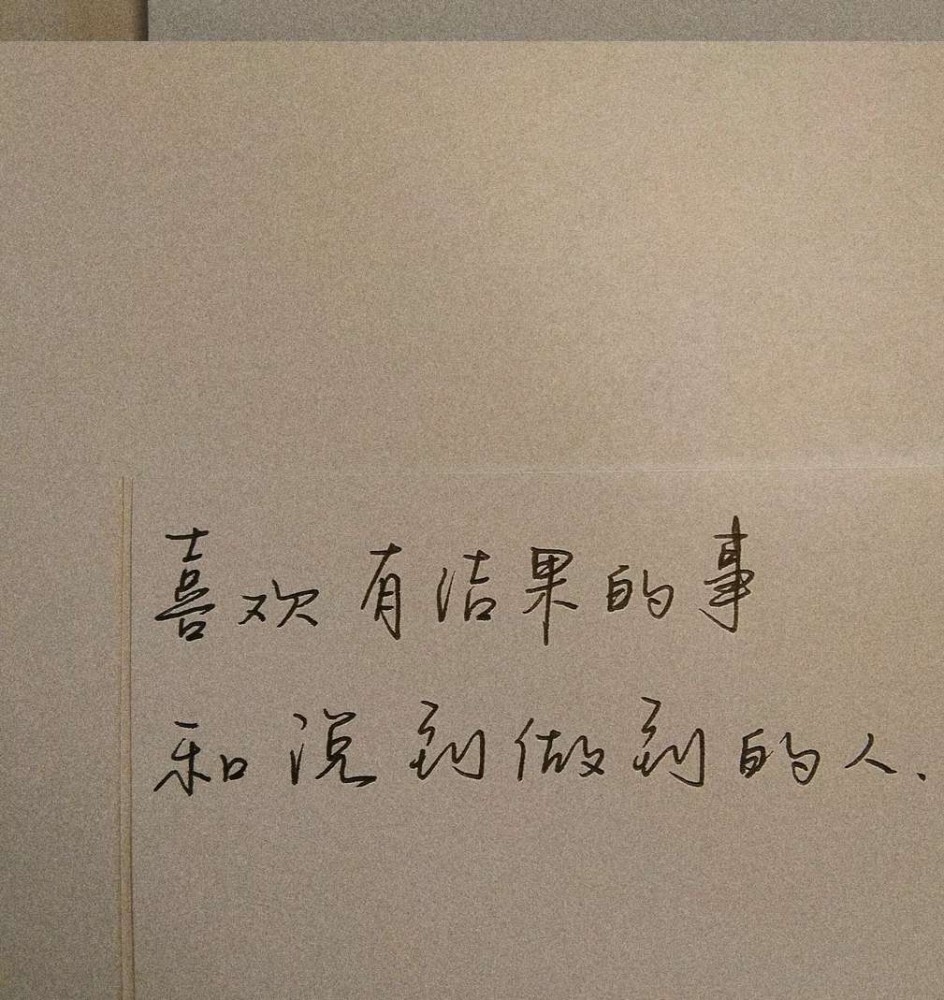 喜欢有结果的事
和说到做到的人.